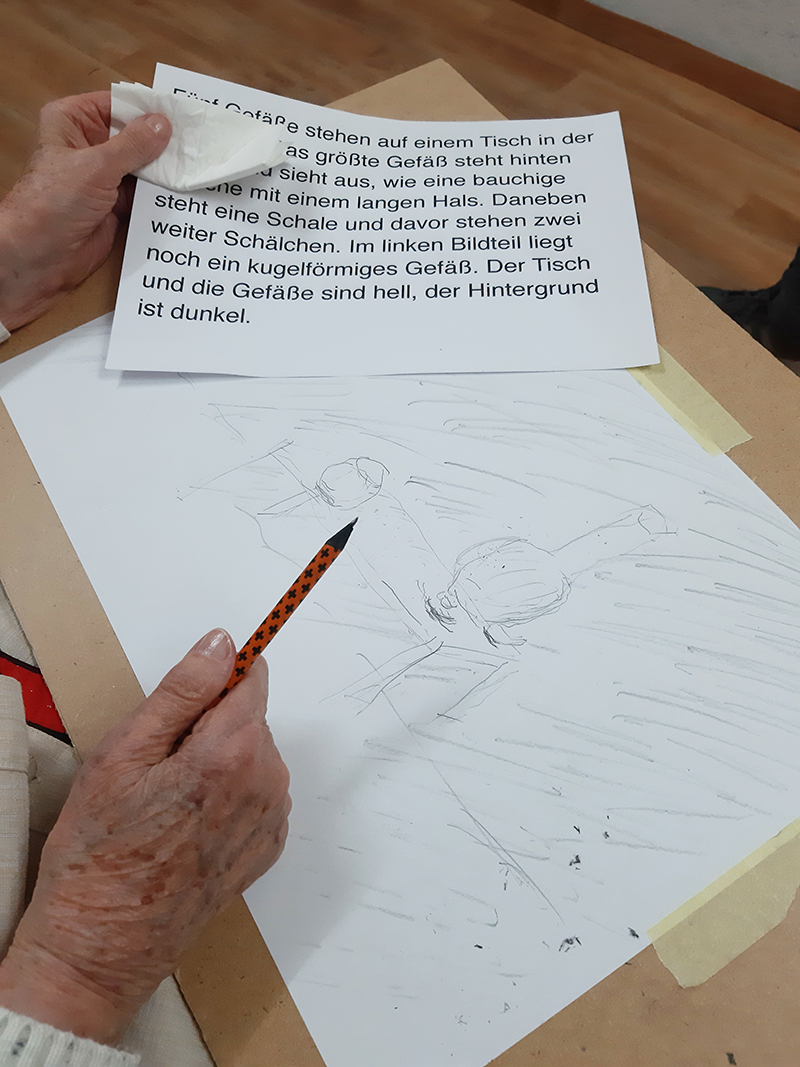 Fünf Gefäße stehen auf einem Tisch in der
das größte Gefäß steht hinten
und sieht aus, wie eine bauchige
mit einem langen Hals. Daneben
steht eine Schale und davor stehen zwei
weiter Schälchen. Im linken Bildteil liegt
noch ein kugelförmiges Gefäß. Der Tisch
und die Gefäße sind hell, der Hintergrund
ist dunkel.